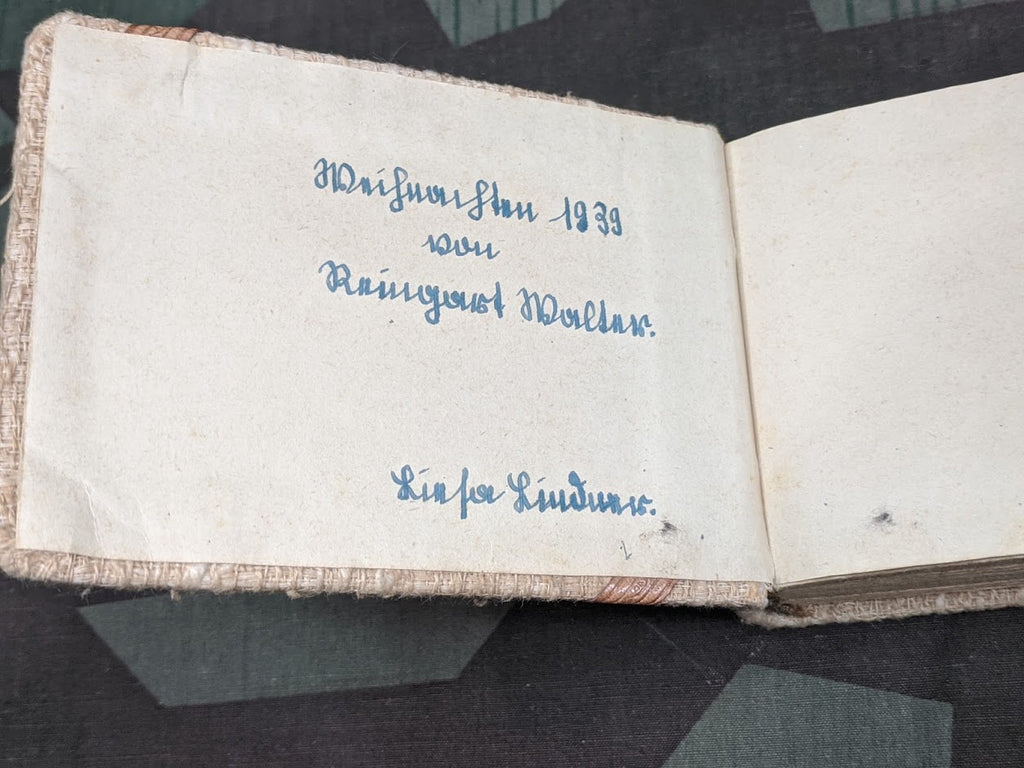 Weihnachten 1939
von
Reingart Walter.
Liesa Lindner.